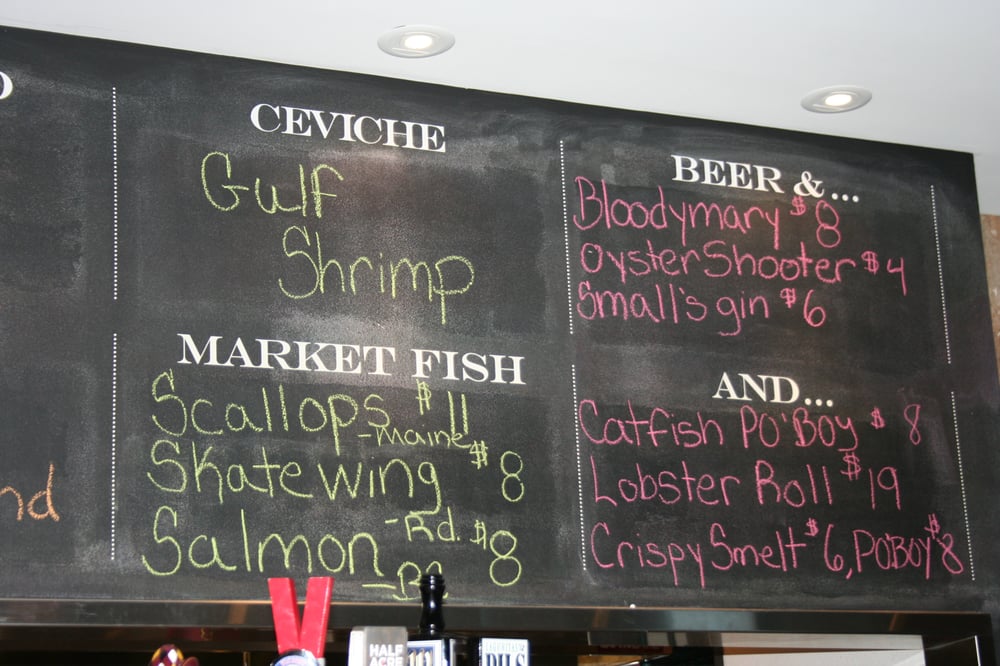 CEVICHE
Gulf
Shrimp
MARKET FISH
Scallops $11
-Maine
Skate wing $8
-Rd.
Salmon $8
nd
BEER & ...
Bloodymary $8
Oyster Shooter $4
Small's gin $6
AND...
Catfish PO'BOY $8
Lobster Roll $19
Crispy Smelt $6, PO'BOY $8
HALF
ACRE
PILS